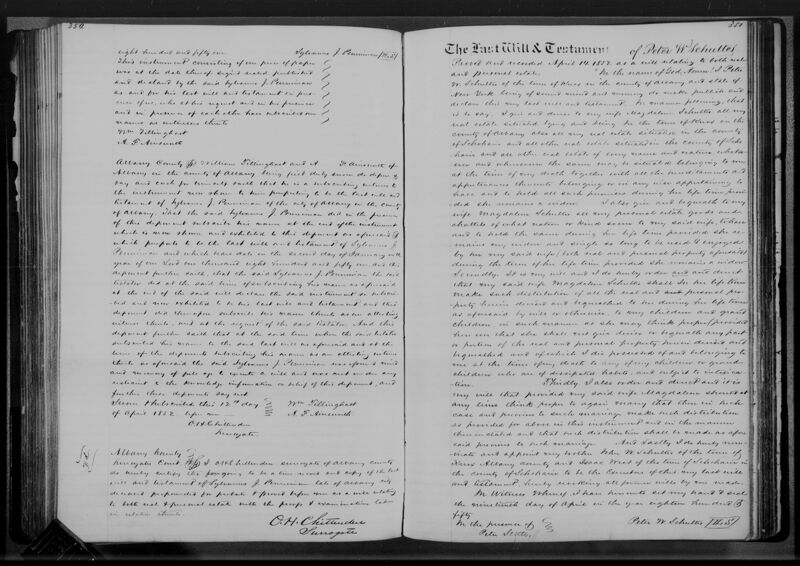 350.
eight hundred and fifty one Sylvanus J. Penniman [L.S.]
This instrument consisting of one piece of paper
was at the date thereof signed sealed published
and declared by the said Sylvanus J. Penniman
as and for his last will and testament in pres-
ence of us, who at his request and in his presence
and in presence of each other have subscribed our
names as witnesses thereto
Wm Tillinghast
A. F. Ainsworth
Albany County ss William Tillinghast and A. F. Ainsworth of
Albany in the county of Albany being first duly sworn do depose &
say and each for himself saith that he is a subscribing witness to
the instrument now shown to him purporting to be the last will and
testament of Sylvanus J. Penniman of the city of Albany in the county
of Albany. That the said Sylvanus J. Penniman did in the presence
of this deponent subscribe his name at the end of the instrument
which is now shown and exhibited to this deponent as aforesaid &
which purports to be the last will and testament of Sylvanus J.
Penniman and which bears date on the second day of January in the
year of our Lord one thousand eight hundred and fifty one and this
deponent further saith, that the said Sylvanus J. Penniman the said
testator did at the said time of subscribing his name as aforesaid
at the end of the said will declare the said instrument so subscri-
bed and now exhibited to be his last will and testament and this
deponent did thereupon subscribe his name thereto as an attesting
witness thereto, and at the request of the said testator. And this
deponent further saith that at the said time when the said testator
subscribed his name to the said last will as aforesaid and at the
time of the deponents subscribing his name as an attesting witness
thereto as aforesaid the said Sylvanus J. Penniman was of sound mind
and memory of full age to execute a will and was not under any
restraint to the knowledge information or belief of this deponent, and
further these deponents say not
Sworn & subscribed this 12th day Wm Tillinghast
of April 1852 before me A. F. Ainsworth
O H Chittenden
Surrogate.
Albany County
Surrogate Court ss I O H Chittenden surrogate of Albany county
do hereby certify the foregoing to be a true record and copy of the last
will and testament of Sylvanus J. Penniman late of Albany city
deceased propounded for probate & proved before me as a will relating
to both real & personal estate with the proofs & examination taken
in relation thereto.
O. H. Chittenden
Surrogate
351
The Last Will & Testament of Peter W Schultes
Proved and recorded April 14. 1852. as a will relating to both real
and personal estate. In the name of God Amen. I Peter
W. Schultes of the town of Knox in the county of Albany and state of
New York being of sound mind and memory do make publish and
declare this my last will and testament. In manner following, that
is to say, I give and devise to my wife Magdalen Schultes all my
real estate situated lying and being in the town of Knox in the
county of Albany also all my real estate situated in the county
of Schoharie and all other real estate situated in the county of Scho-
harie and all other real estate of every name and nature whatso-
ever and wheresoever the same may be situated belonging to me
at the time of my death together with all the hereditaments and
appurtenances thereunto belonging or in any wise appertaining to
have and to hold all such premises during her life time provi-
ded she remains a widow. I also give and bequeath to my
wife Magdalen Schultes all my personal estate goods and
chattels of what nature or kind soever to my said wife, to have
and to hold the same during her life time provided she re-
mains my widow and single so long to be used & enjoyed
by her my said wife, both real and personal property aforesaid
during the term of her life time provided she remains a widow
Secondly. It is my will and I do hereby order and direct
that my said wife Magdalen Schultes shall in her life time
make such distribution of all the real and personal pro-
perty herein devised and bequeathed to her during her life time
as aforesaid by wills or otherwise, to my children and grand
children in such manner as she may think proper, provided
however that she shall not give devise or bequeath any part
or portion of the real and personal property herein devised and
bequeathed and of which I die possessed of and belonging to
me at the time of my death to any of my children or grand
children who are of dissipated habits, and subject to intoxica-
tion. Thirdly I also order and direct and it is
my will that provided my said wife Magdalena should at
any time think proper to again marry that then in such
case and previous to such marriage make such distribution
as provided for above in this instrument and in the manner
therein stated and that such distribution shall be made as afore
said previous to such marriage. And Lastly, I do hereby nom-
inate and appoint my brother John W Schultes of the town of
Knox Albany county and Isaac West of the town of Schoharie in
the county of Schoharie to be the executors of this my last will
and testament, hereby revoking all former wills by me made.
In Witness Whereof, I have hereunto set my hand & seal
the nineteenth day of April in the year eighteen hundred &
fifty
In the presence of Peter W. Schultes [L.S.]
Peter